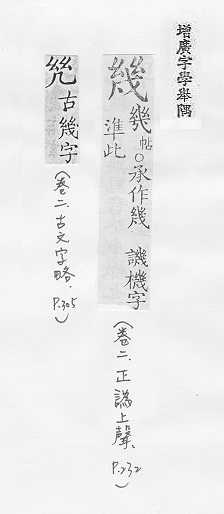 增廣字學舉隅
幾
㡬帖○承作幾 譏機字
準此
(卷二.正譌上聲、P.232)
古幾字
(卷二.古文字略、P.305)